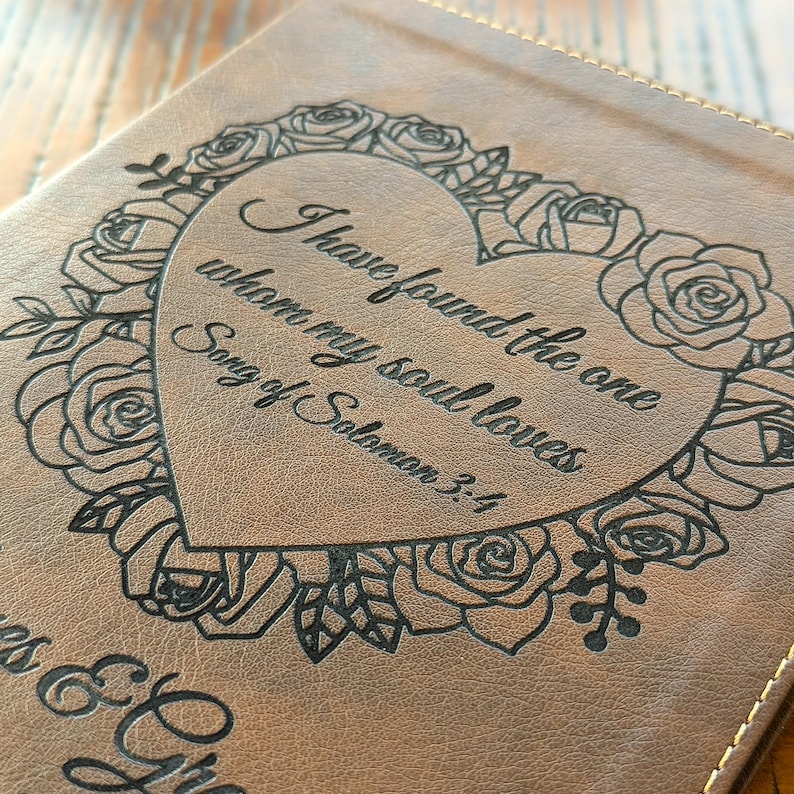 I have found the one
whom my soul loves
Song of Solomon 3:4
&